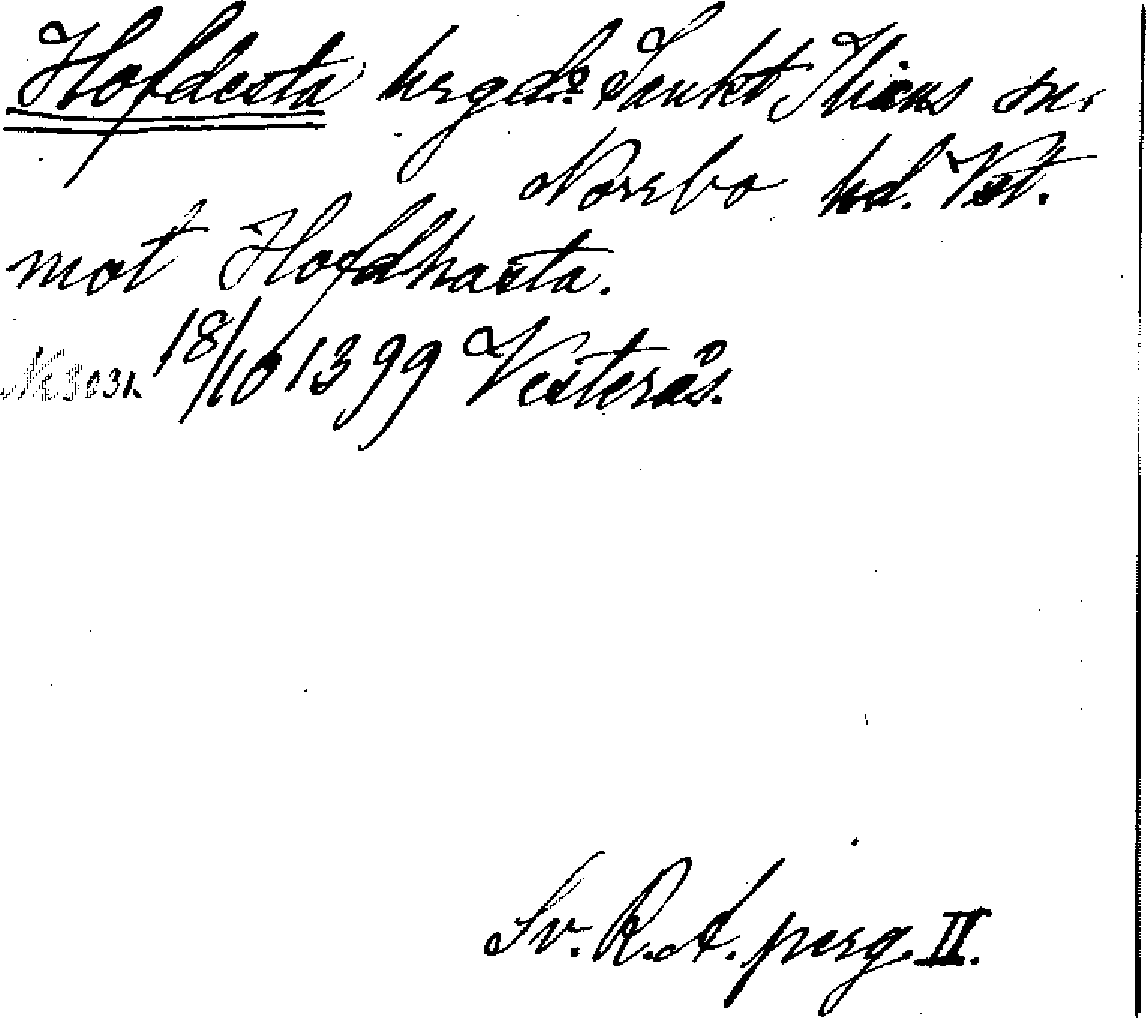 Hofdesta hrgd? Sankt Ilians sn.
Norrbo hd. Vst.
mot Hofdhasta.
Nr 3031. 18/10 1399 Vesterås.
Sv. R. A. perg. II.